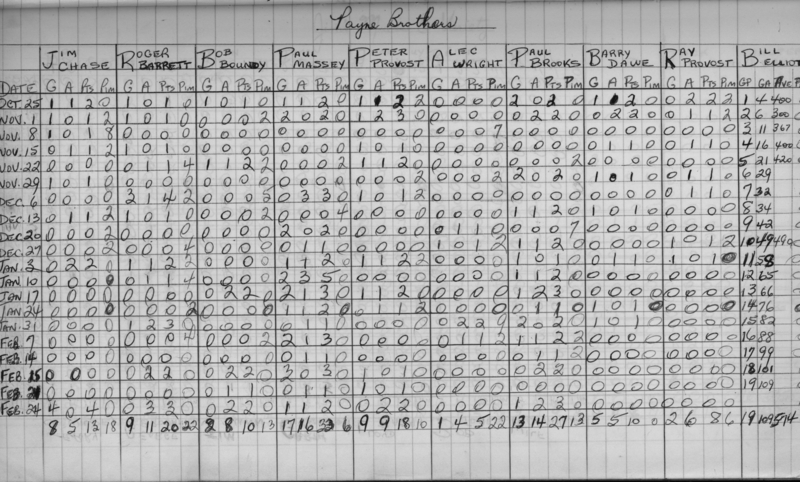 Payne Brothers
JIM CHASE ROGER BARRETT BOB BOUNDY PAUL MASSEY PETER PROVOST ALEC WRIGHT PAUL BROOKS BARRY DAWE RAY PROVOST BILL ELLIOT
DATE G A Pts Pim G A Pts Pim G A Pts Pim G A Pts Pim G A Pts Pim G A Pts Pim G A Pts Pim G A Pts Pim G A Pts Pim GP GA Ave
OCT 25 1 1 2 0 1 0 1 0 1 0 1 0 1 1 2 0 1 1 2 2 0 0 0 0 2 0 2 0 1 1 2 0 0 2 2 2 1 4 400
NOV. 1 1 0 1 2 1 0 1 0 0 0 0 2 2 0 2 0 1 2 3 0 0 0 0 0 0 2 2 0 0 2 2 0 0 1 1 2 2 6 300
NOV. 8 1 0 1 8 0 0 0 0 0 0 0 0 0 0 0 0 0 0 0 0 0 0 0 7 0 0 0 0 0 0 0 0 0 0 0 0 3 11 367
NOV. 15 0 1 1 2 1 0 1 0 0 0 0 0 0 0 0 0 1 0 1 0 0 0 0 0 0 0 0 0 0 1 1 0 0 1 1 0 4 16 400
NOV. 22 0 0 0 0 0 1 1 4 1 1 2 2 0 0 0 2 1 1 2 0 0 0 0 0 0 0 0 2 0 0 0 0 0 0 0 0 5 21 420
NOV. 29 1 0 1 0 0 0 0 0 0 0 0 0 0 0 0 0 0 0 0 2 0 0 0 2 2 0 2 0 1 0 1 0 0 0 0 0 6 29
DEC. 6 0 0 0 0 2 1 4 2 0 0 0 0 3 3 0 1 0 1 2 0 0 0 0 0 0 0 0 0 0 0 0 0 1 1 0 7 32
DEC. 13 0 1 1 2 1 0 1 0 0 0 0 2 0 0 0 4 0 0 0 0 0 0 0 0 1 1 2 0 1 0 1 0 0 0 0 0 8 34
DEC. 20 0 0 0 2 0 0 0 0 0 0 0 0 2 0 2 0 0 0 0 0 0 1 1 0 0 0 0 7 0 0 0 0 0 0 0 0 9 42
DEC. 27 0 0 0 2 0 0 0 4 0 0 0 0 0 1 1 0 0 0 0 0 1 0 1 2 1 1 2 0 0 0 0 0 1 0 1 2 10 49 490
JAN. 0 2 2 0 1 1 2 2 0 0 0 0 1 1 2 0 1 1 2 2 0 0 0 0 1 0 1 0 0 1 1 0 1 0 1 0 11 58
JAN. 10 0 0 0 0 0 1 1 4 0 0 0 0 2 3 5 0 0 0 0 0 0 0 0 0 1 1 2 0 0 0 0 0 0 0 0 0 12 65
JAN 17 0 0 0 0 0 0 0 0 0 2 2 0 2 1 3 0 1 1 2 0 0 0 0 0 1 2 3 0 0 0 0 0 0 0 0 0 13 66
JAN 24 0 0 0 0 0 0 0 2 0 0 0 0 1 1 2 0 0 1 1 2 0 0 0 0 0 1 1 0 1 0 1 0 0 0 0 0 14 76
JAN. 31 0 0 0 0 1 2 3 0 0 0 0 0 0 1 1 0 0 0 0 0 0 2 2 9 2 0 2 0 1 0 1 0 0 0 0 0 15 82
FEB. 7 0 0 0 0 0 0 0 4 0 0 0 0 2 1 3 0 0 0 0 0 0 1 1 2 1 1 2 2 0 0 0 0 0 0 0 0 16 88
FEB. 14 0 0 0 0 0 0 0 0 0 0 0 0 0 1 1 0 0 0 0 0 0 0 0 0 0 1 1 2 0 0 0 0 0 0 0 0 17 99
FEB. 15 0 0 0 0 0 2 2 0 0 2 2 0 3 0 3 0 1 0 1 0 0 0 0 0 0 0 0 0 0 0 0 0 0 0 0 0 18 101
FEB. 0 0 0 0 0 0 0 0 0 1 1 0 0 1 1 0 1 0 1 0 0 0 0 0 0 0 0 0 0 0 0 0 0 0 0 0 19 109
FEB. 24 4 0 4 0 0 3 3 0 0 2 2 0 1 1 2 0 0 2 2 0 0 0 0 0 1 2 3 0
8 5 13 18 9 11 20 22 2 8 10 13 17 16 33 6 9 9 18 10 1 4 5 22 13 14 27 13 5 5 10 0 2 6 8 6 19 109 574